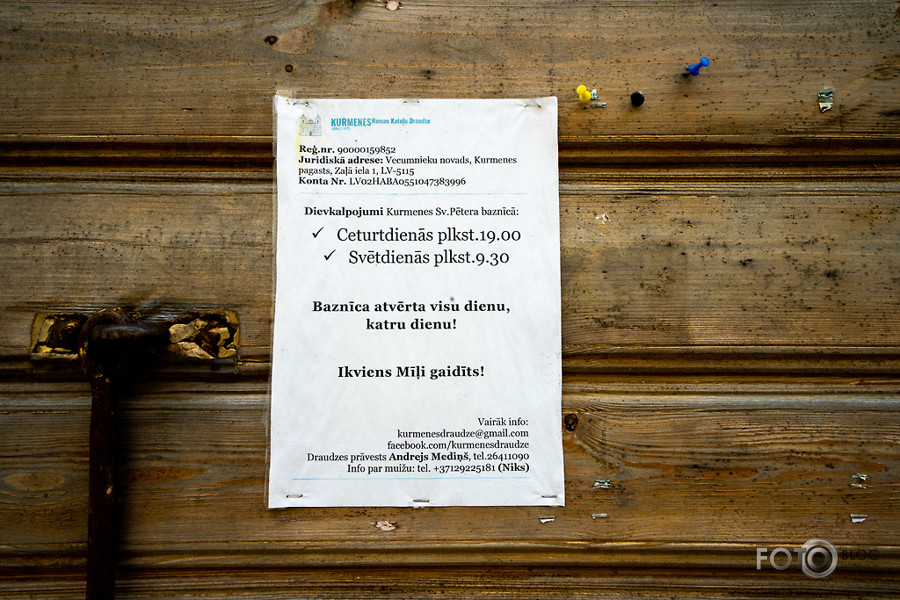 KURMENES Romas Katoļu Draudze
Reģ.nr. 90000159852
Juridiskā adrese: Vecumnieku novads, Kurmenes
pagasts, Zaļā iela 1, LV-5115
Konta Nr. LV02HABA0551047383996
Dievkalpojumi Kurmenes Sv.Pētera baznīcā:
✓ Ceturtdienās plkst.19.00
✓ Svētdienās plkst.9.30
Baznīca atvērta visu dienu,
katru dienu!
Ikviens Mīļi gaidīts!
Vairāk info:
kurmenesdraudze@gmail.com
facebook.com/kurmenesdraudze
Draudzes prāvests Andrejs Mediņš, tel.26411090
Info par muižu: tel. +37129225181 (Niks)
FOTO BLOG